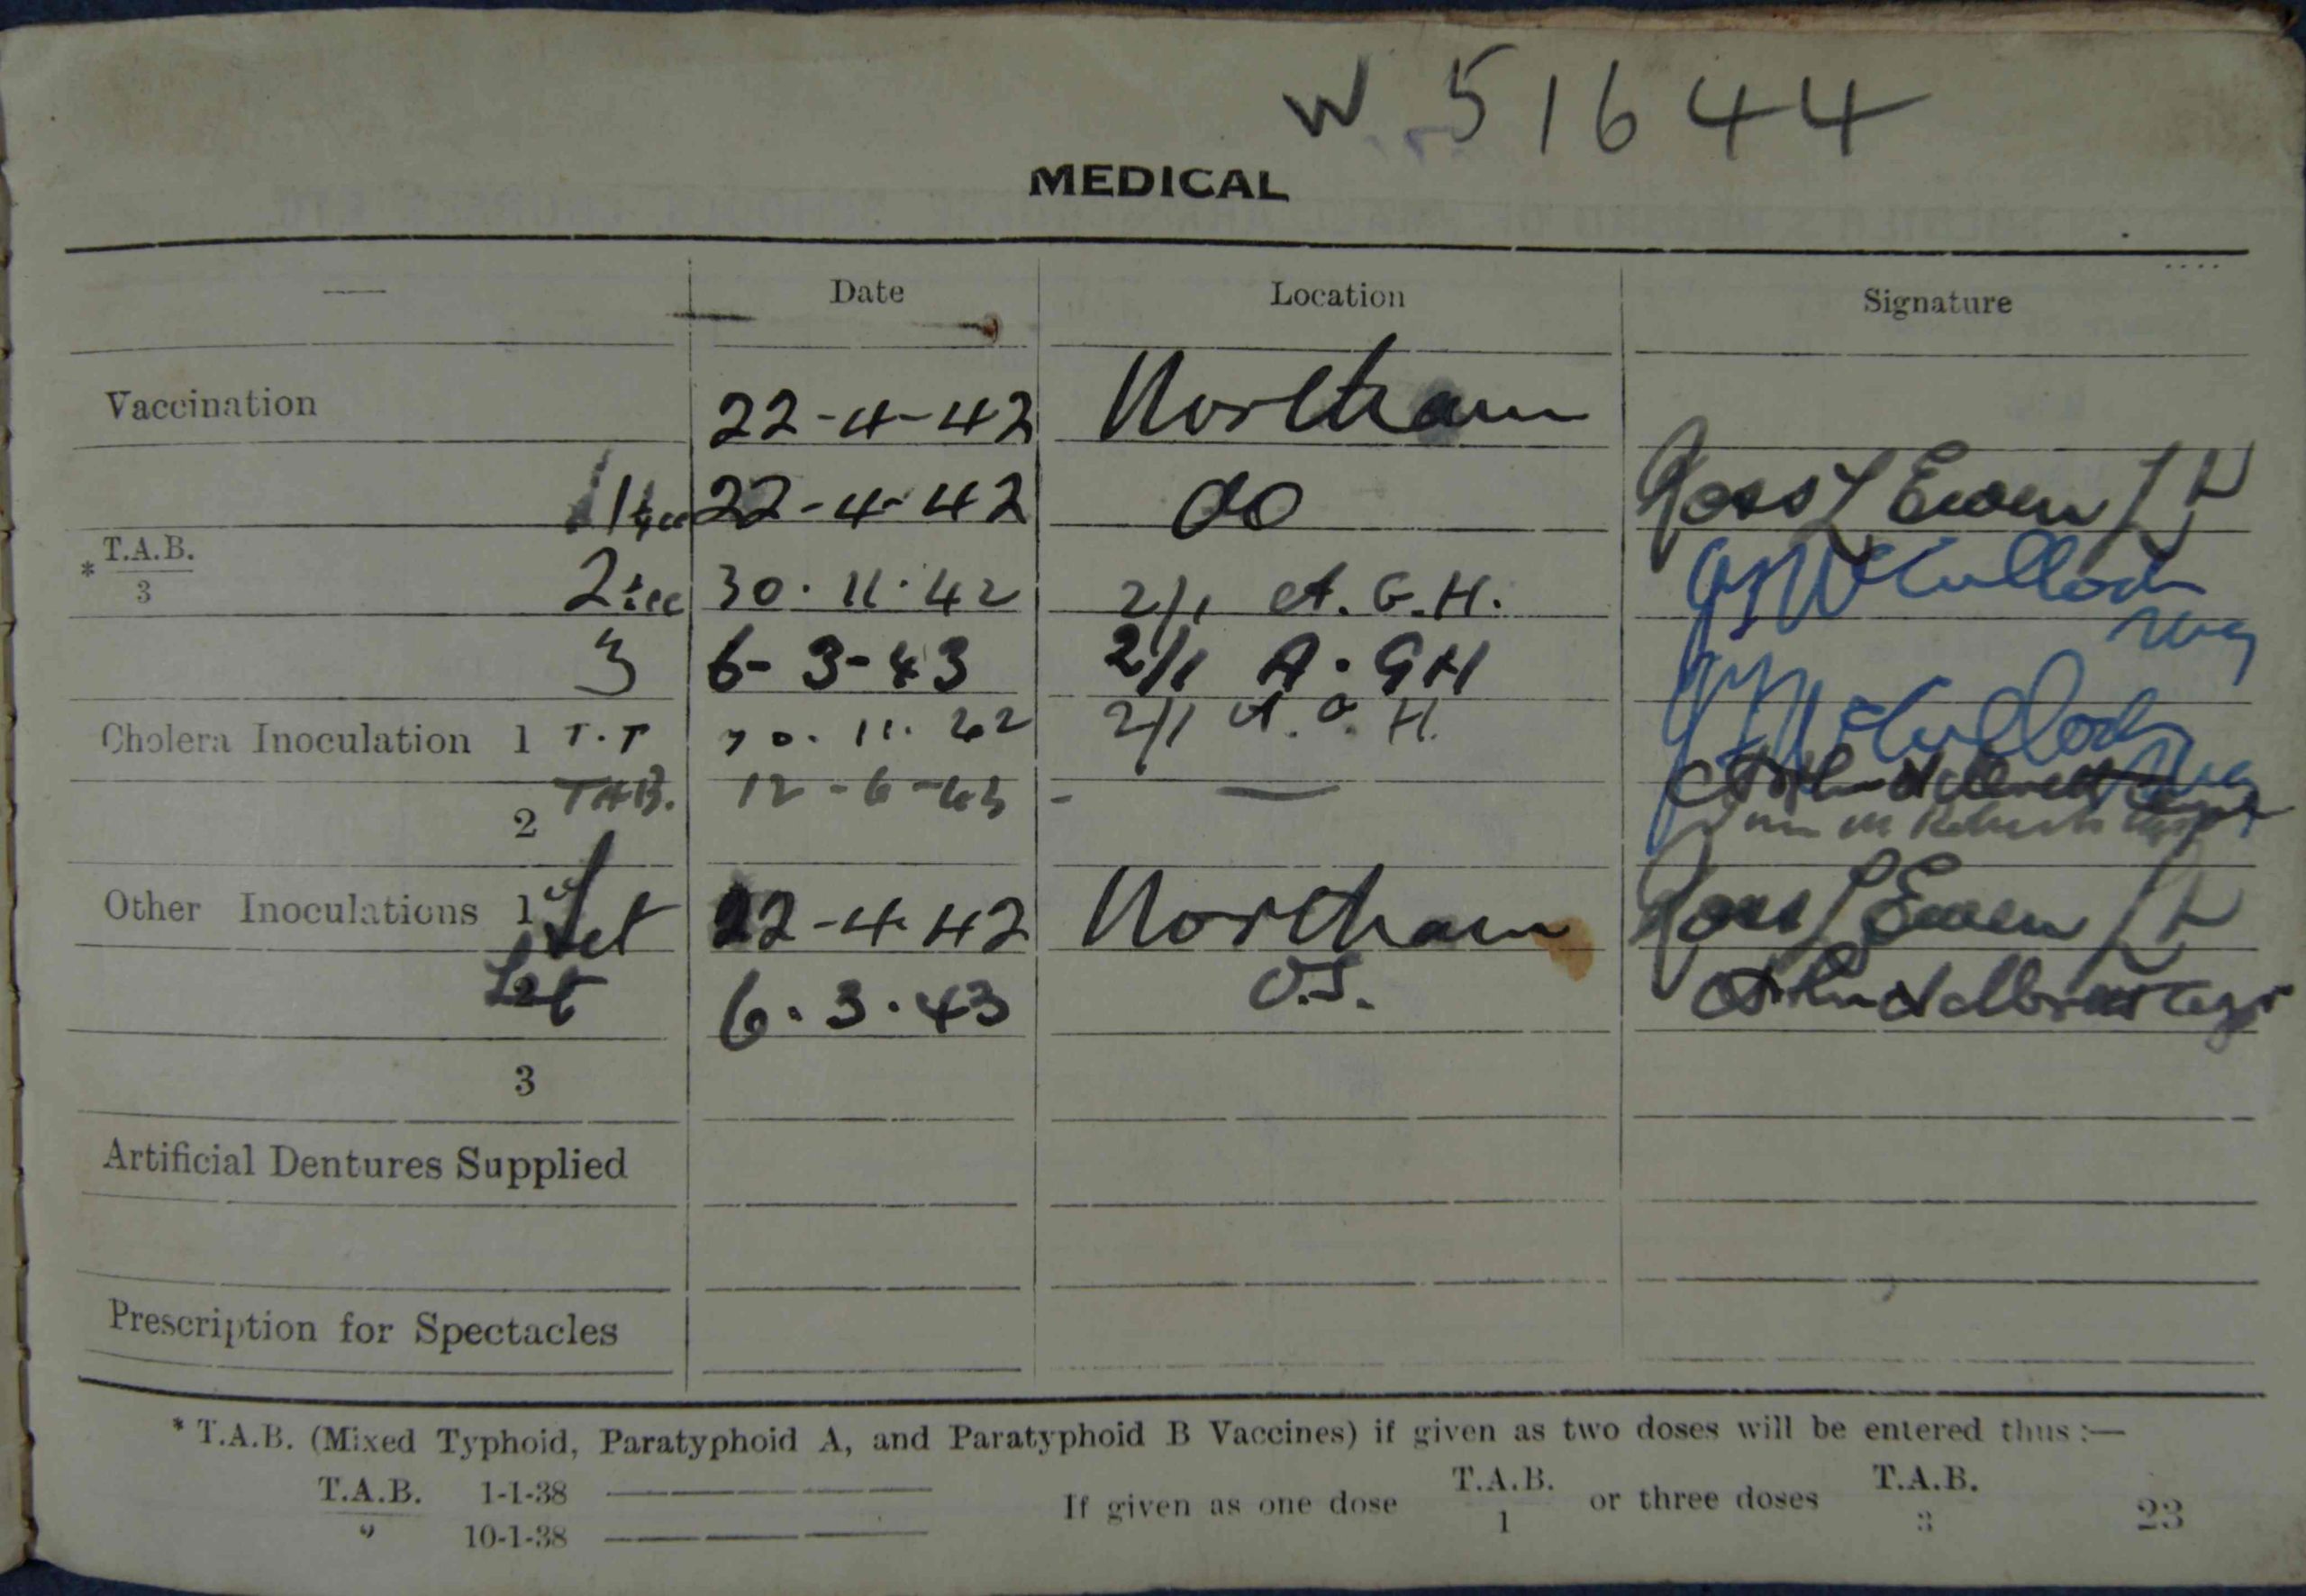 W 51644
MEDICAL
— Date Location Signature
Vaccination 22-4-42 Northam
1 22-4-42 do Ross L Ewen
* T.A.B. / 3 2 30.11.42 2/1 A.G.H. McCulloch
3 6-3-43 2/1 A.GH
Cholera Inoculation 1 T.T 30.11.42 2/1 A.G.H. McCulloch
2 TAB. 12-6-43 —
Other Inoculations 1 Tet 22-4-42 Northam Ross L Ewen
2 Tet 6.3.43 O.S.
3
Artificial Dentures Supplied
Prescription for Spectacles
* T.A.B. (Mixed Typhoid, Paratyphoid A, and Paratyphoid B Vaccines) if given as two doses will be entered thus :—
T.A.B. 1-1-38 ———— If given as one dose T.A.B. / 1 or three doses T.A.B. / 3 23
" 10-1-38 ————